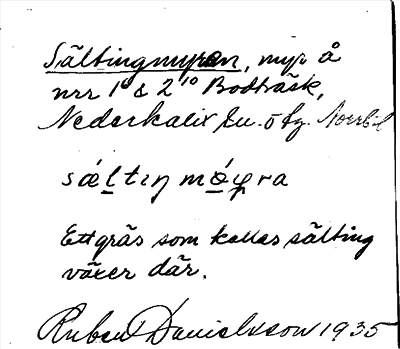 Sältingmyran, myr å
nrr 1⁶ & 2¹⁰ Bodträsk,
Nederkalix su. o tg. Norrb.l
Ett gräs som kallas sälting
växer där.
Ruben Danielsson 1935